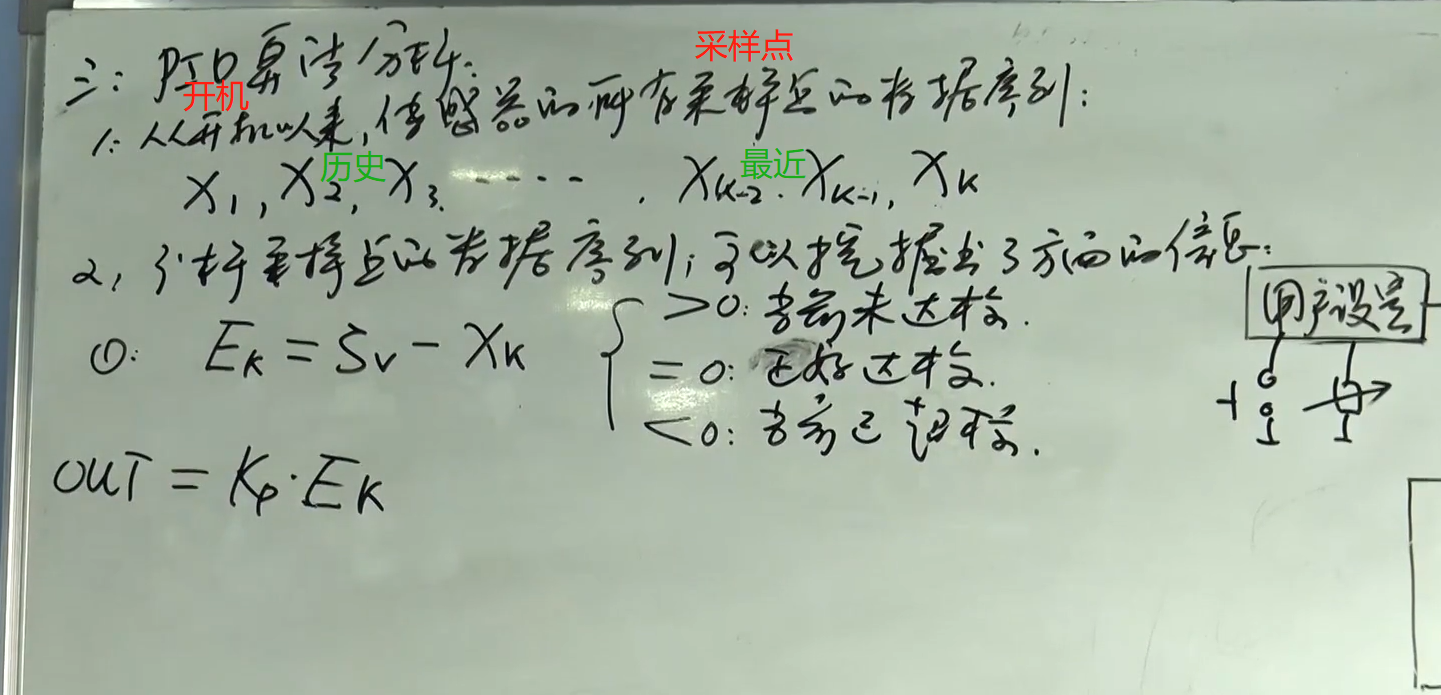 三: PID算法分析:
采样点
开机
1: 从开机以来, 传感器的所有采样点的数据序列:
历史
最近
X₁, X₂, X₃. ····· . X_{K-2}. X_{K-1}, X_K
2, 分析采样点的数据序列; 可以挖掘出3方面的信息:
①: E_K = S_V - X_K
>0: 当前未达标.
= 0: 正好达标.
<0: 当前已超标.
用户设置
OUT = K_P·E_K